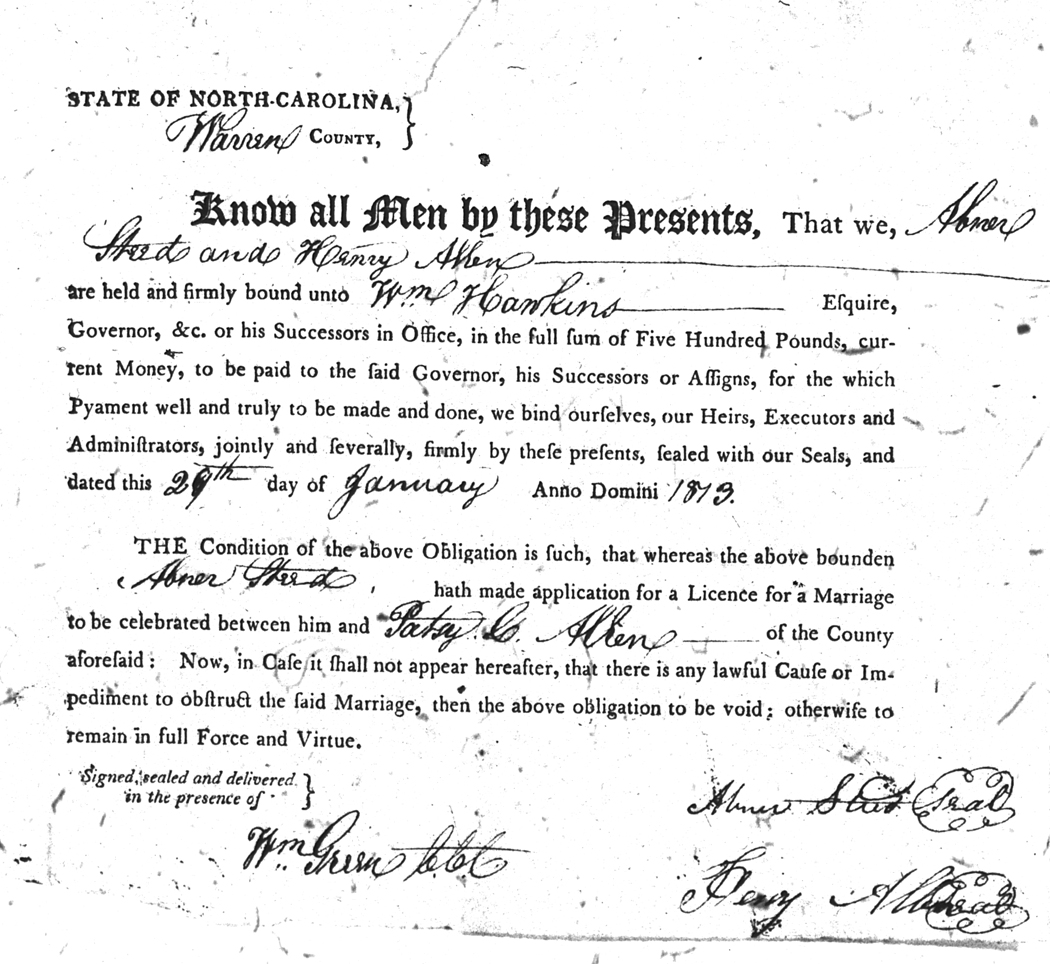 STATE OF NORTH-CAROLINA,
Warren COUNTY,
Know all Men by these Presents, That we, Abner
Steed and Henry Allen
are held and firmly bound unto Wm Hawkins Eſquire,
Governor, &c. or his Successors in Office, in the full ſum of Five Hundred Pounds, cur-
rent Money, to be paid to the ſaid Governor, his Successors or Aſſigns, for the which
Pyament well and truly to be made and done, we bind ourſelves, our Heirs, Executors and
Adminiſtrators, jointly and ſeverally, firmly by theſe preſents, ſealed with our Seals, and
dated this 29th day of January Anno Domini 1813.
THE Condition of the above Obligation is ſuch, that whereas the above bounden
Abner Steed, hath made application for a Licence for a Marriage
to be celebrated between him and Patsy C. Allen of the County
aforeſaid: Now, in Caſe it ſhall not appear hereafter, that there is any lawful Cauſe or Im-
pediment to obſtruct the ſaid Marriage, then the above obligation to be void: otherwiſe to
remain in full Force and Virtue.
Signed, sealed and delivered
in the presence of
Abner Steed Seal
Wm Green CCC
Henry Allen Seal